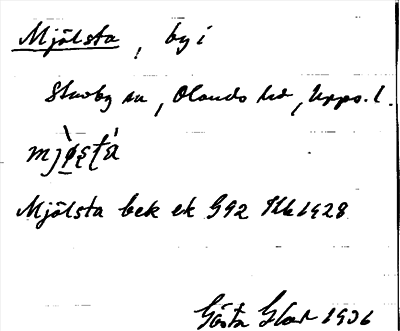 Mjölsta, by i
Stavby sn, Olands hd, Upps. l.
Mjölsta bek ek G92 1928
Gösta 1936